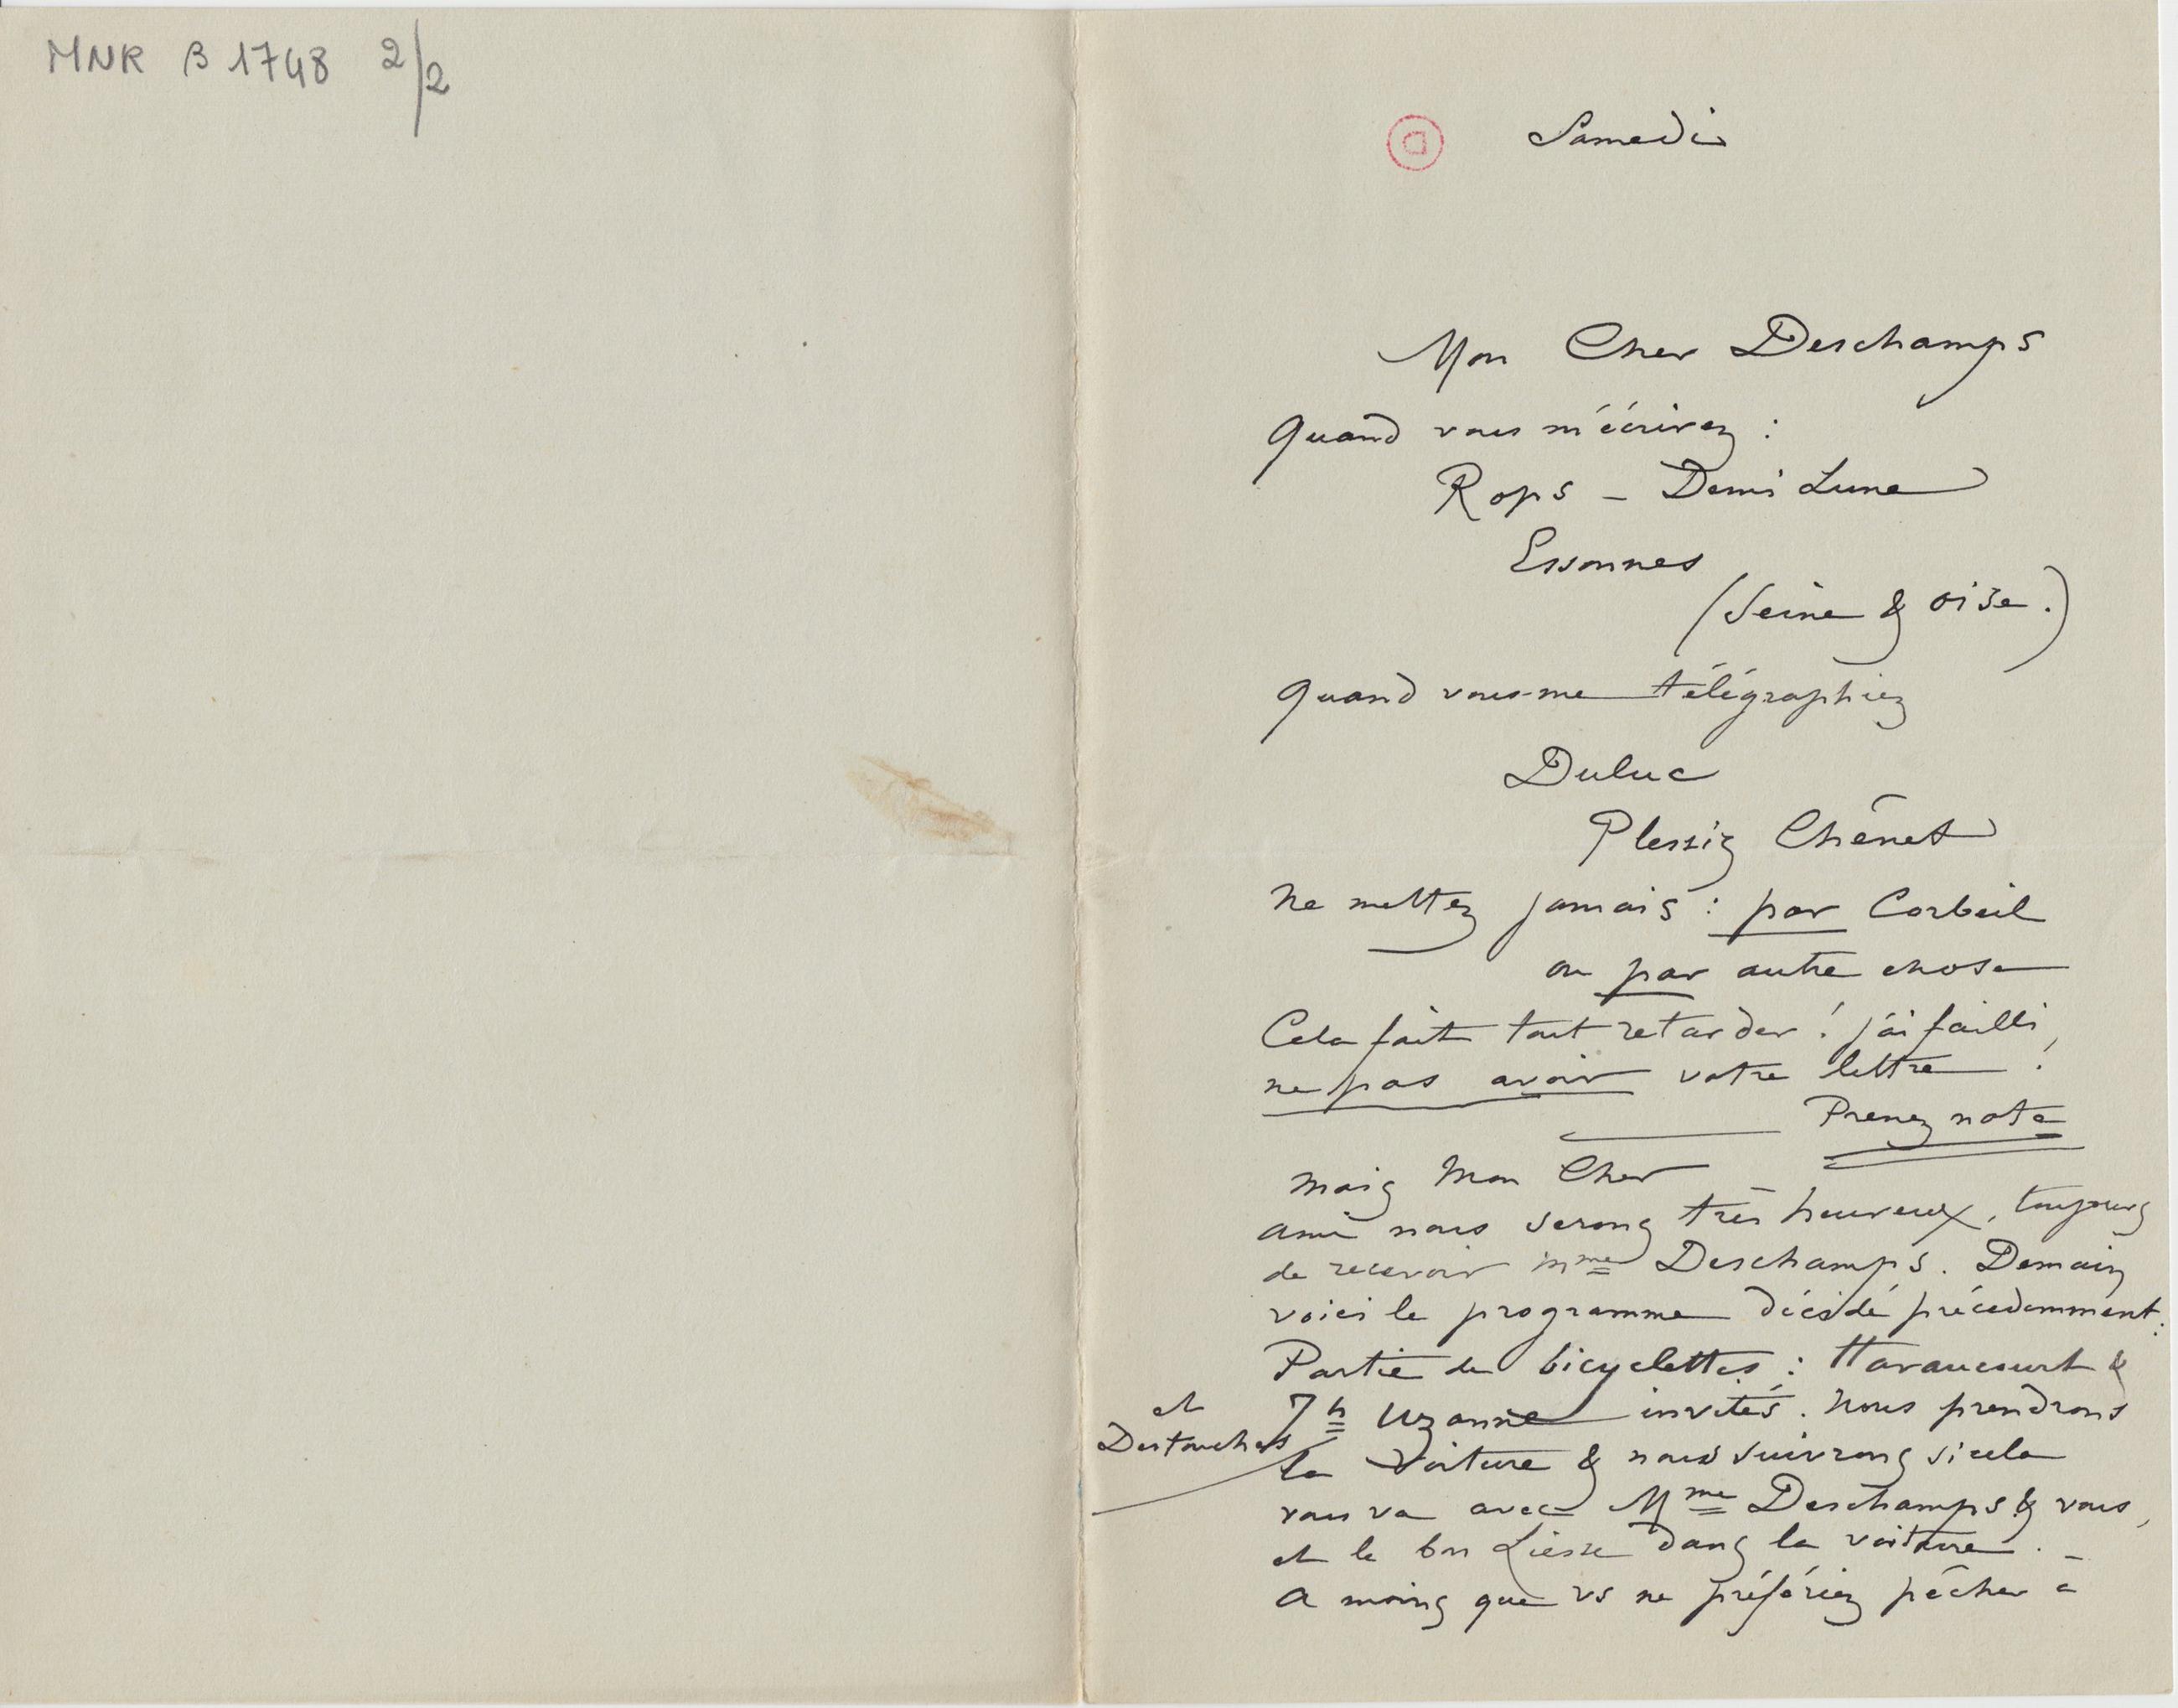 MNR B 1748 2/2
Samedi
Mon Cher Deschamps
Quand vous m'écrivez :
Rops – Demi Lune
Essonnes
(Seine & oise.)
Quand vous-me télégraphiez
Duluc
Plessis Chênet
Ne mettez jamais : par Corbeil
ou par autre chose
Cela fait tout retarder ! j'ai failli,
ne pas avoir votre lettre !
Prenez note
Mais Mon Cher
ami nous serons très heureux, toujours
de recevoir Mme Deschamps. Demain
voici le programme décidé précedemment :
Partie de bicyclettes : Haraucourt &
Jh Uzanne invités. Nous prendrons
et
Destouches
la voiture & nous suivrons si cela
vous va avec Mme Deschamps & vous,
et le bon Liesse dans la voiture. –
A moins que vs ne préfériez pêcher à